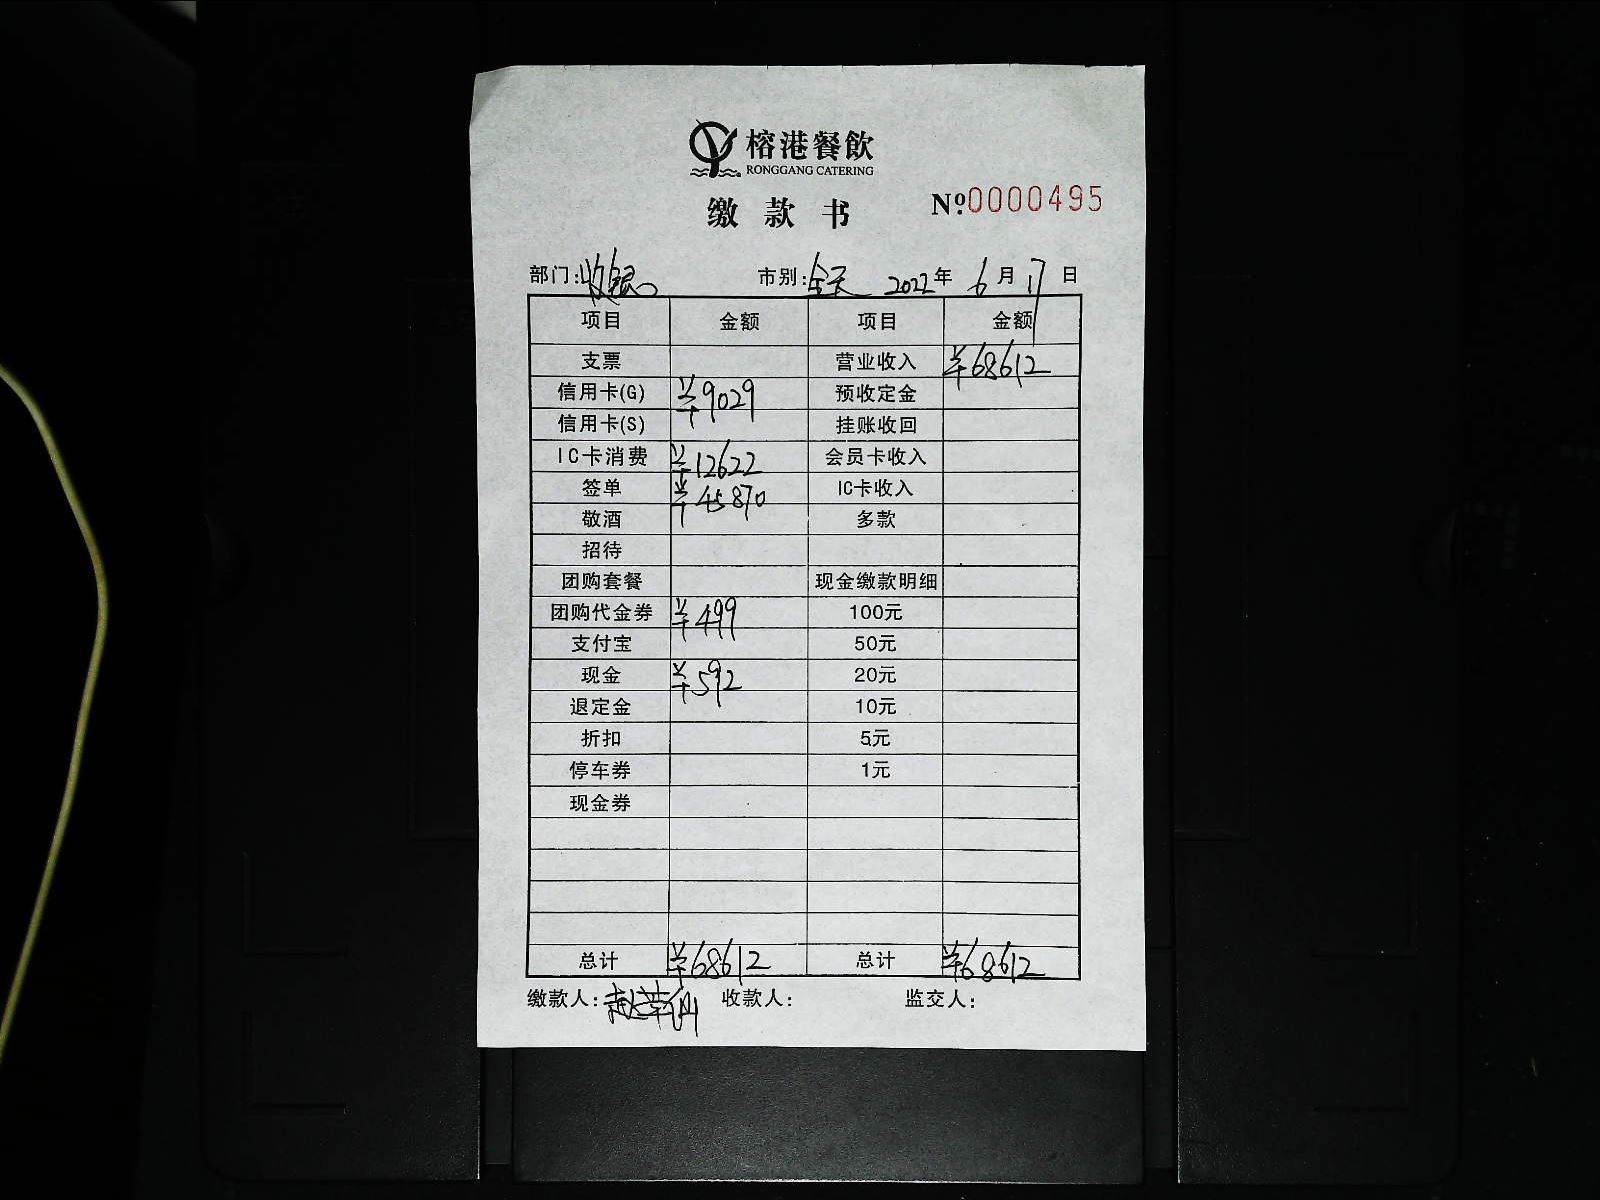 榕港餐飲
RONGGANG CATERING
缴款书 Nº.0000495
部门:收银 市别:全天 2022年 6月 17日
项目 金额 项目 金额
支票 营业收入 ¥68612
信用卡(G) ¥9029 预收定金
信用卡(S) 挂账收回
IC卡消费 ¥12622 会员卡收入
签单 ¥45870 IC卡收入
敬酒 多款
招待
团购套餐 现金缴款明细
团购代金券 ¥499 100元
支付宝 50元
现金 ¥592 20元
退定金 10元
折扣 5元
停车券 1元
现金券
总计 ¥68612 总计 ¥68612
缴款人: 收款人: 监交人: